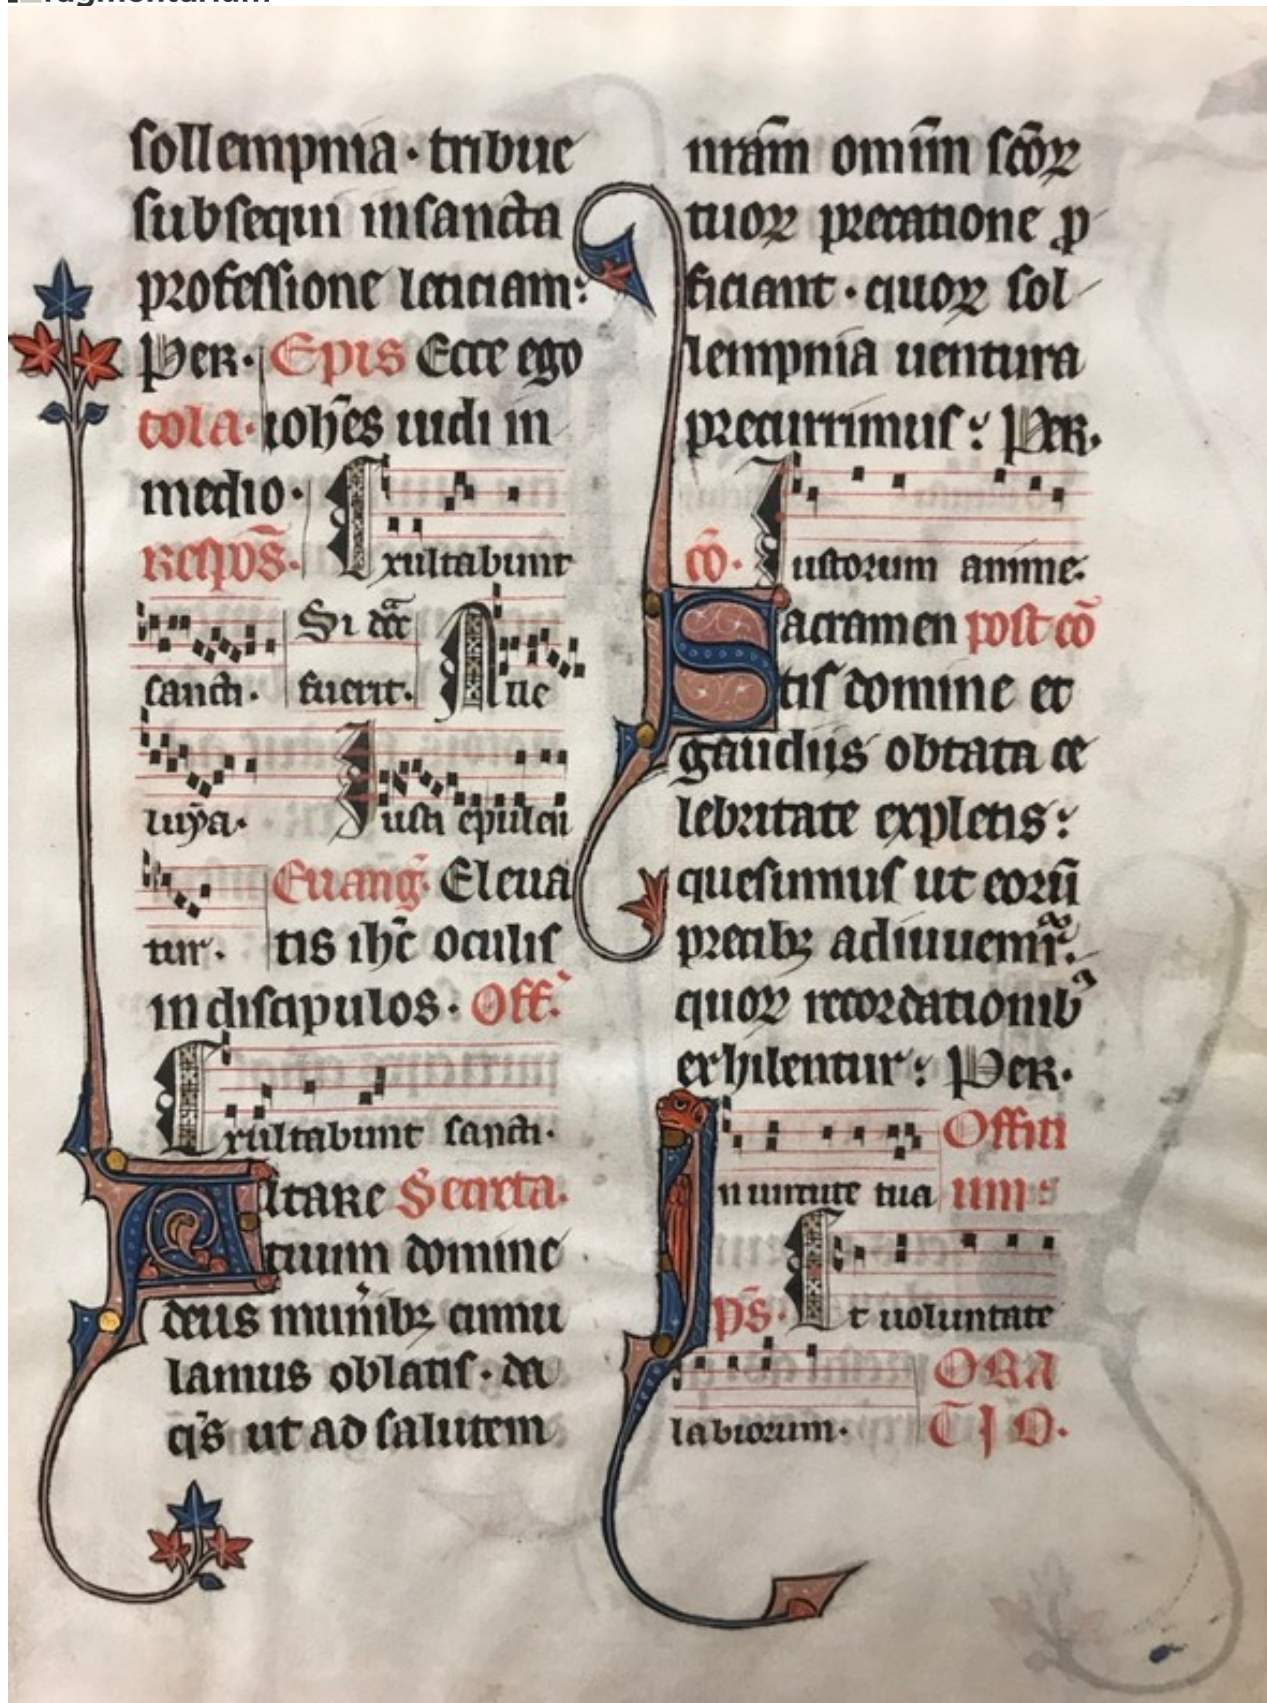 sollempnia · tribue
subsequi in sancta
professione leticiam:
Per · Epis Ecce ego
tola · ioh̄es uidi in
medio ·
respōs · Exultabunt
sancti · Si dr̄
fuerit · Alle
luya · Iusti epulen
tur · Euang̃ · Eleua
tis ih̄c oculis
in discipulos · Off̃ ·
Exultabunt sancti ·
Altare Secreta ·
tuum domine
deus munībꝫ cumu
lamus oblatis · da
q̄s ut ad salutem
nr̄am omīm sc̄oꝝ
tuoꝝ precatione ꝓ
ficiant · quoꝝ sol
lempnia uentura
precurrimus : Per ·
cō · Iustorum anime ·
Sacramen post cō
tis domine et
gaudiis obtata ce
lebritate expletis :
quesumus ut eorū
precibꝫ adiuuemr̃ ·
quoꝝ recordationibꝰ
exhilentur : Per ·
In uirtute tua Offiti
um :
ps̄ · Et uoluntate
labiorum · ORA
TIO ·